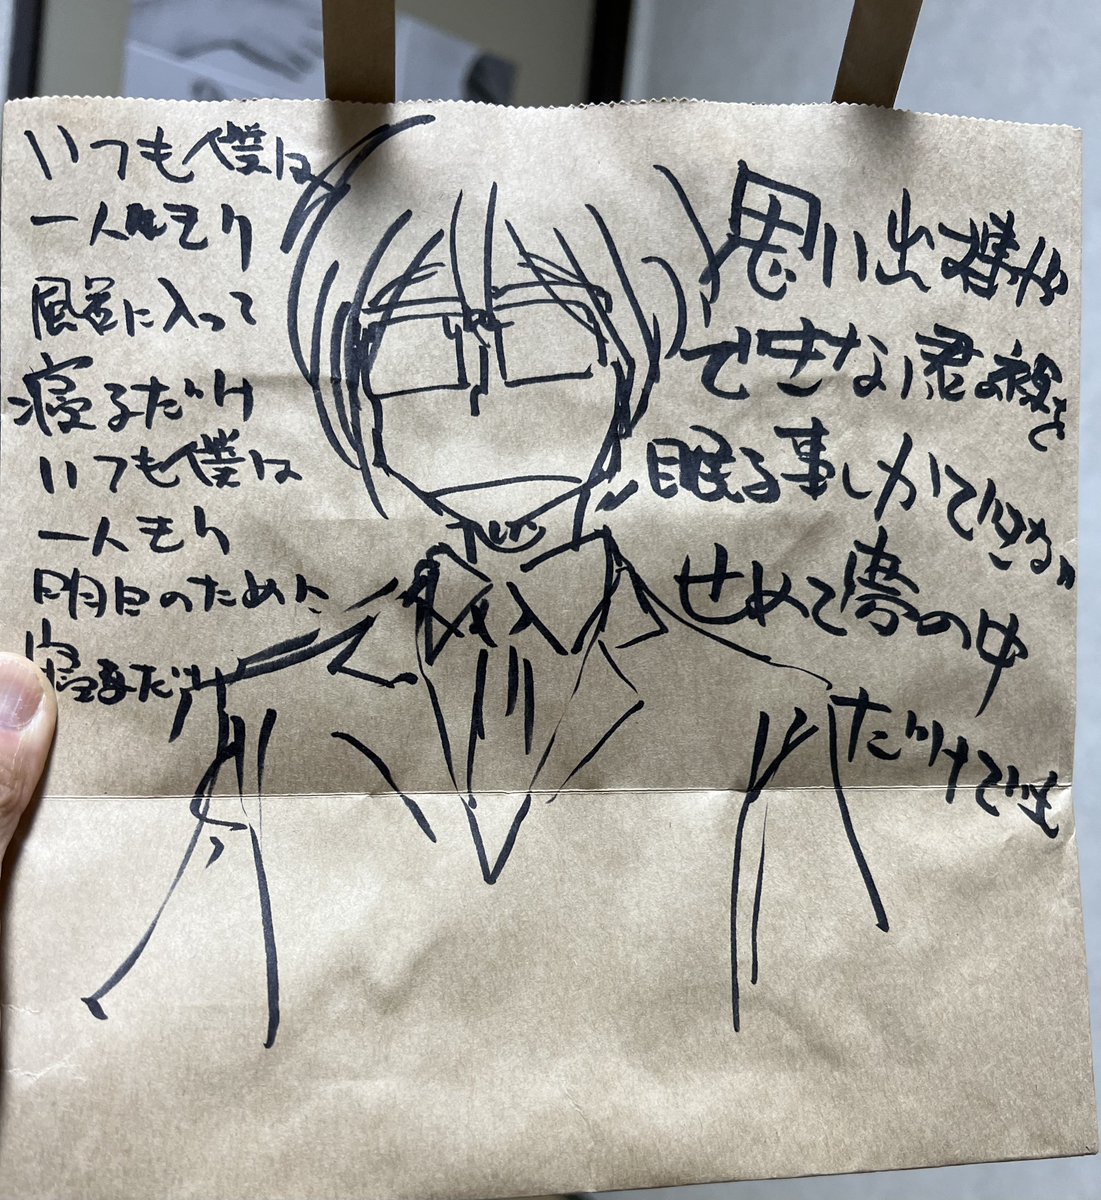 いつも僕は
一人きり
風呂に入って
寝るだけ
いつも僕は
一人きり
明日のために
寝るだけ
思い出
できない君
眠る事しかできない
せめて夢の中
だけでも